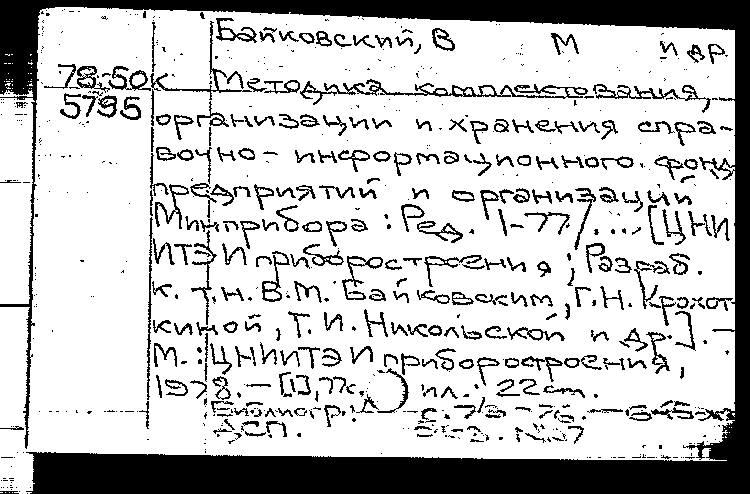 Байковский, В М и др
78-50к Методика комплектования,
5795 организации и хранения спра-
вочно-информационного фонд
предприятий и организаций
Минприбора: Ред. 1-77/... [ЦНИ
ИТЭИприборостроения; Разраб.
к.т.н. В.М. Байковским, Г.Н. Крохот-
киной, Т.И. Никольской и др.]. —
М.: ЦНИИТЭИприборостроения,
1978. — [1], 77с. ил.; 22 см.
Библиогр.: с. 75-76. —
ДСП. №37